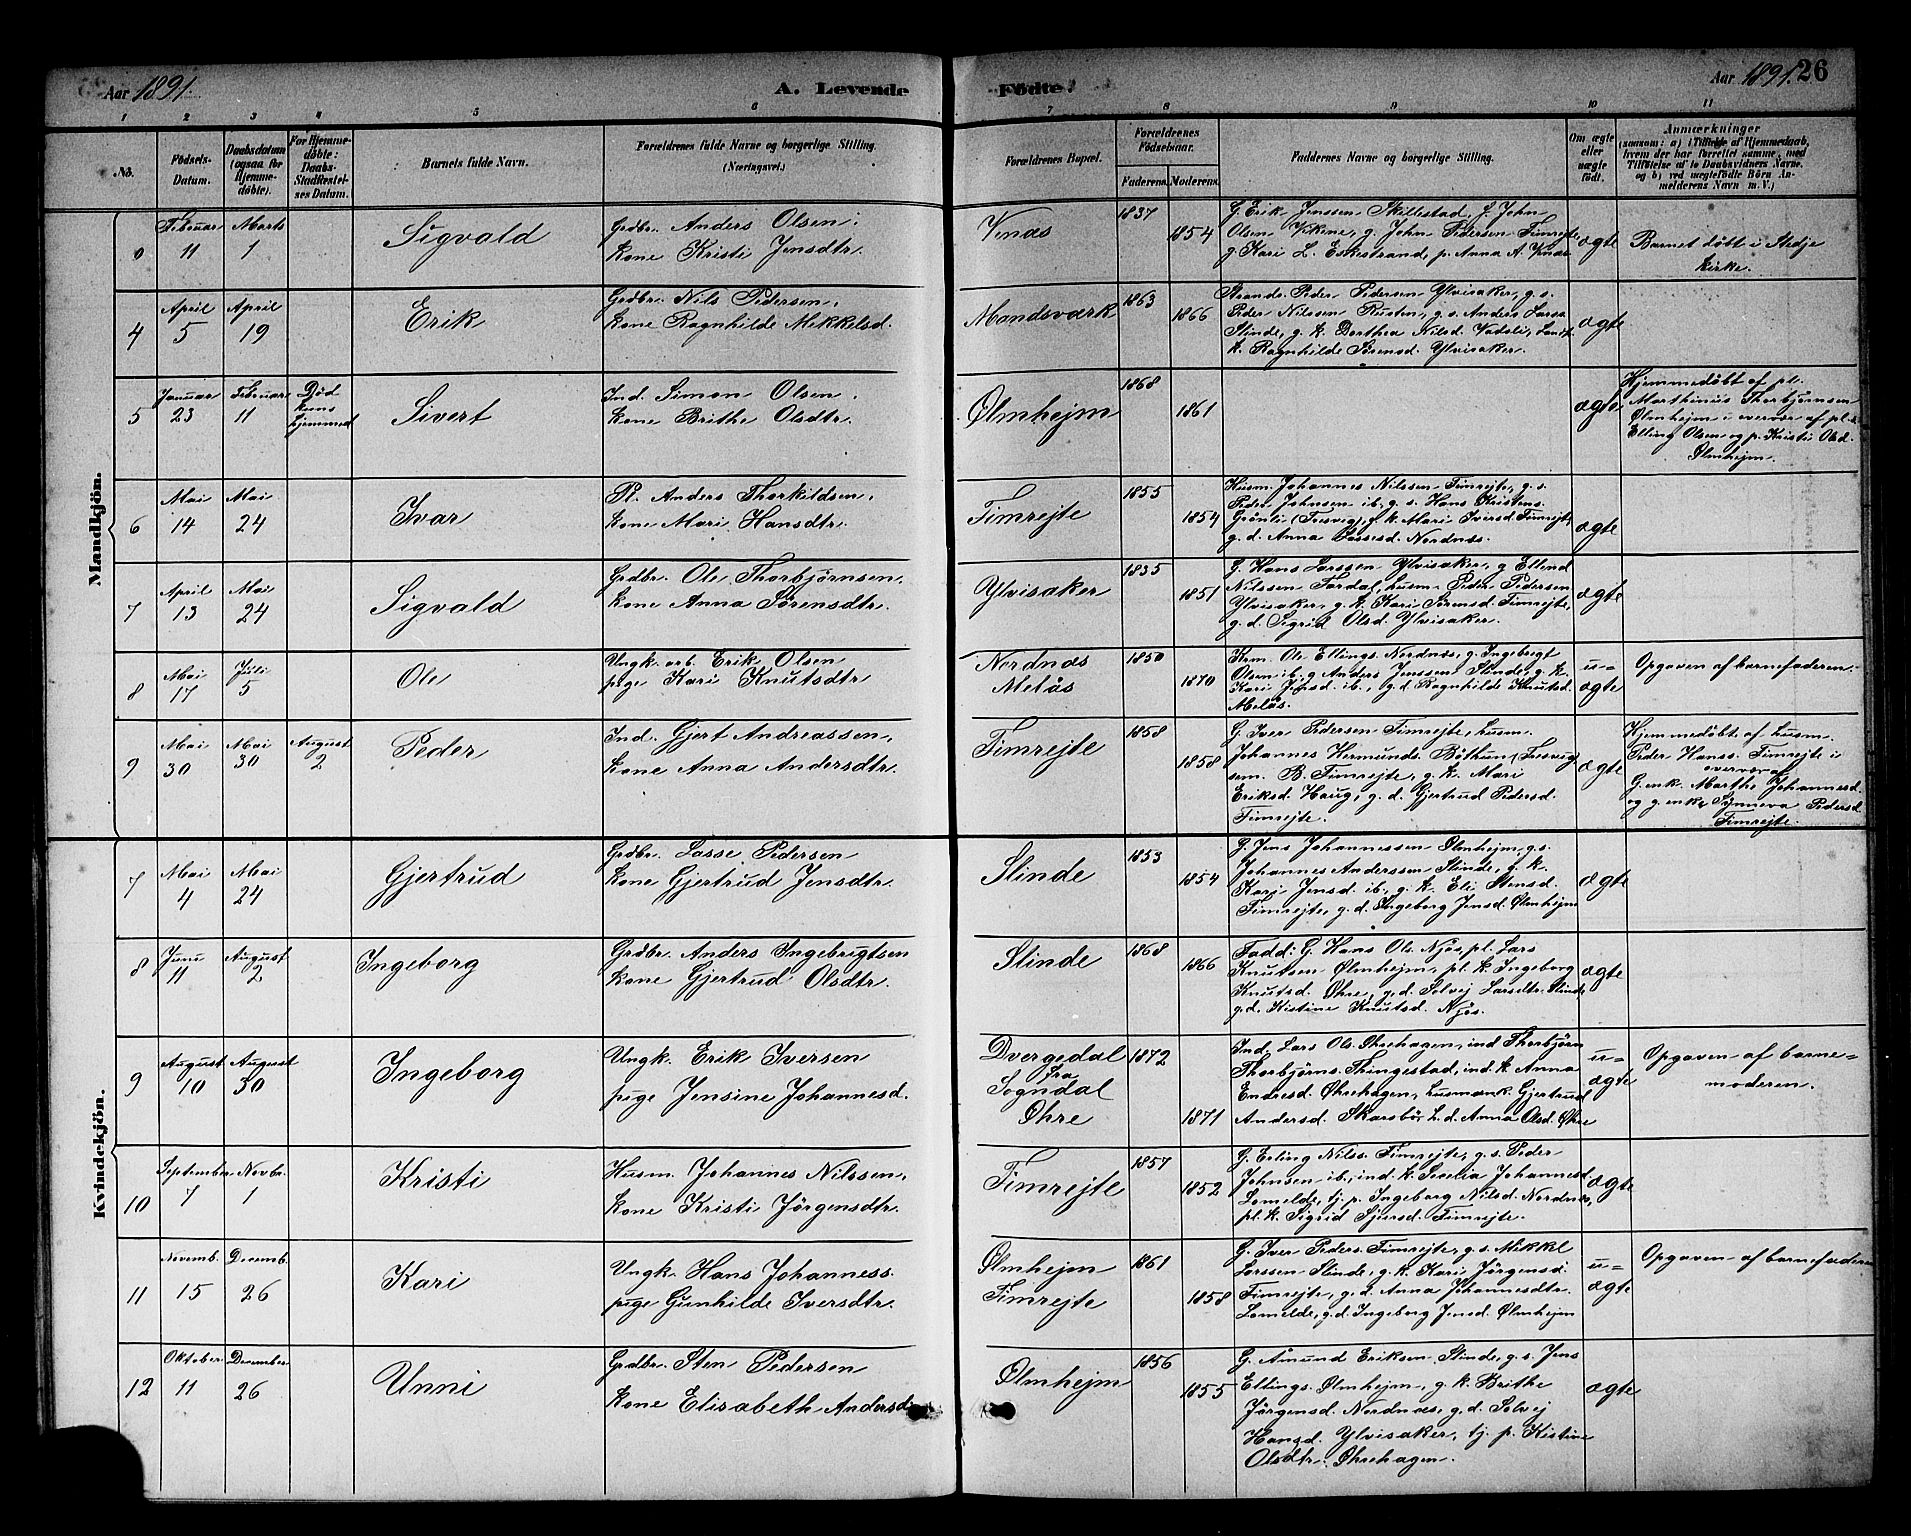 Aar 1891. A. Levende Födte. Aar 1891. 26
1 2 3 4 5 6 7 8 9 10 11
No.
Födsels-Datum.
Daabsdatum (ogsaa for Hjemme-döbte).
For Hjemme-döbte: Daabs-Stadfæstelses Datum.
Barnets fulde Navn.
Forældrenes fulde Navne og borgerlige Stilling.
(Næringsvei.)
Forældrenes Bopæl.
Forældrenes Födselsaar.
Faderens. Moderens.
Faddernes Navne og borgerlige Stilling.
Om ægte eller uægte födt.
Anmærkninger
(saasom: a) i Tilfælde af Hjemmedaab, hvem der har forrettet samme, med Tilföielse af to Daabsvidners Navne, og b) ved uægtefödte Börn Anmelderens Navn m. V.)
Mandkjön.
Februar 11 Marts 1
Sigvald
Grdbr. Anders Olsen.
Kone Kristi Jensdtr.
Venæs
1837
1854
G. Erik Jenssen Skillestad, g. John
Olsen Vikene, g. John Pedersen Fimrejte,
g. Kari L. Eskestrand, p. Anna A. Venæs
ægte
Barnet döbt i Stedje
kirke.
4 April 5 April 19
Erik
Grdbr. Nils Pedersen.
Kone Ragnhilde Mikkelsd.
Mandsværk
1863
1866
Strands. Peder Pedersen Ylvisaker, g.s.
Peder Nilssen Rusten, g.s. Anders Larss.
Slinde, g.k. Borthea Nilsd. Vadsli,
k. Ragnhilde Sörensd. Ylvisaker.
ægte
5 Januar 23 Februar 11
Död kuns hjemmed
Sivert
Ind. Simon Olsen.
Kone Brithe Olsdtr.
Ølmhejm
1868
1861
ægte
Hjemmedöbt af pl.
Marthinus Thorbjörnsen
Ølmhejm i overvær af pl.
Elling Olsen og p. Kristi Olsd.
Ølmhejm.
6 Mai 14 Mai 24
Ivar
Pl. Anders Thorkildsen.
Kone Mari Hansdtr.
Fimrejte
1855
1854
Husm. Johannes Nilssen Fimrejte, g.s.
Peder Johnsen ib, g.s. Hans Kristens.
Grönli (Fresvig), g.k. Mari Iversd. Fimrejte
g.d. Anna Lassesd. Nordnæs.
ægte
7 April 13 Mai 24
Sigvald
Grdbr. Ole Thorbjörnsen.
Kone Anna Sörensdtr.
Ylvisaker
1835
1851
G. Hans Larssen Ylvisaker, g. Ellend
Nilssen Fardal, husm. Peder Pedersen
Ylvisaker, g.k. Kari Sörensd. Fimrejte,
g.d. Sigrid Olsd. Ylvisaker.
ægte
8 Mai 17 Juli 5
Ole
Ungk. arb. Erik Olsen
pige Kari Knutsdtr
Nordnæs
Melås
1850
1870
Krm. Ole Ellings. Nordnæs, g. Ingebrigt
Olsen ib, g. Anders Jenssen Slinde, g.k.
Kari Jensd. ib., g.d. Ragnhilde Knutsd.
Melås.
u-
ægte
Opgaven af barnefaderen.
9 Mai 30 Mai 30 August 2
Peder
Ind. Gjert Andreassen,
Kone Anna Andersdtr.
Fimrejte
1858
1858
G. Iver Pedersen Fimrejte, husm.
Johannes Hermunds. Böthun (Fresvig)
sem. B. Fimrejte, g.k. Mari
Eriksd. Haug, g.d. Gjertrud Pedersd.
Fimrejte.
ægte
Hjemmedöbt af husm.
Peder Hanss. Fimrejte i
overvær af
G.enk. Marthe Johannesd.
og g.enke Synneva Pedersd.
Fimrejte.
Kvindekjön.
7 Mai 4 Mai 24
Gjertrud
Grdbr. Lasse Pedersen
Kone Gjertrud Jensdtr.
Slinde
1853
1854
G. Jens Johannessen Ølmhejm, g.s.
Johannes Anderssen Slinde, g.k.
Kari Jensd. ib., g.k. Eli Stensd.
Fimrejte, g.d. Ingeborg Jensd. Ølmhejm
ægte
8 Juni 11 August 2
Ingeborg
Grdbr. Anders Ingebrigtsen
Kone Gjertrud Olsdtr.
Slinde
1868
1866
Fadd: G. Hans Ols. Njös, pl. Lars
Knutsen Ølmhejm, pl. k. Ingeborg
Knutsd. Øhre, g.d. Solvej Larsdtr. Slinde
g.d. Kistine Knutsd. Njös.
ægte
9 August 10 August 30
Ingeborg
Ungk. Erik Iversen
pige Jensine Johannesd.
Dvergedal
fra
Sogndal
Øhre
1872
1871
Ind. Lars Ols. Øhrehagen, ind. Thorbjörn
Thorbjörns. Thingestad, ind. k. Anna
Endresd. Øhrehagen, husmank. Gjertrud
Andersd. Skarsbö, L.d. Anna Olsd. Øhre
u-
ægte
Opgaven af barne-
moderen.
10 September 7 Novbr. 1
Kristi
Husm. Johannes Nilssen,
Kone Kristi Jörgensdtr.
Fimrejte
1857
1852
G. Erling Nilss. Fimrejte, g.s. Peder
Johnsen ib., ind. k. Secelia Johannesd
Lomelde, tj. p. Ingeborg Nilsd. Nordnæs,
pl. k. Sigrid Sjursd. Fimrejte.
ægte
11 Novemb. 15 Decemb. 26
Kari
Ungk. Hans Johanness.
pige Gunhilde Iversdtr.
Ølmhejm
Fimrejte
1861
1858
G. Iver Peders. Fimrejte, g.s. Mikkel
Larssen Slinde, g.k. Kari Jörgensd.
Fimrejte, g.d. Anna Johannesdtr.
Lomelde, g.d. Ingeborg Jensd. Ølmhejm
u-
ægte
Opgaven af barnefaderen
12 Oktober 11 December 26
Unni
Grdbr. Sten Pedersen
Kone Elisabeth Andersd
Ølmhejm
1856
1855
G. Åmund Eriksen Slinde, g.s. Jens
Ellings. Ølmhejm, g.k. Brithe
Jörgensd. Nordnæs, g.d. Solvej
Hansd. Ylvisaker, tj. p. Kistine
Olsdtr. Øhrehagen.
ægte